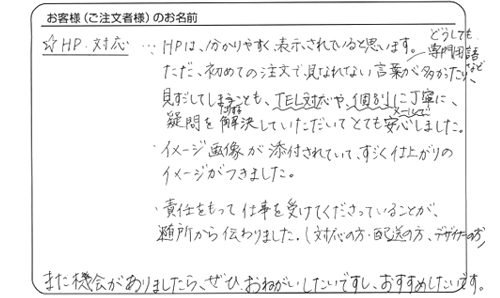 お客様（ご注文者様）のお名前
☆HP.対応 … HPは、分かりやすく表示されていると思います。どうしても専門用語など
ただ、初めての注文で、見なれない言葉が多かったり、
見すごしてしまうことも、TEL対応や、個別に丁寧に、
メールで
疑問を解決していただいてとても安心しました。
・イメージ画像が添付されていて、すごく仕上がりの
イメージがつきました。
・責任をもって仕事を受けてくださっていることが、
随所から伝わりました。（対応の方・配送の方、デザイナーの方）
また機会がありましたら、ぜひ、おねがいしたいですし、おすすめしたいです。